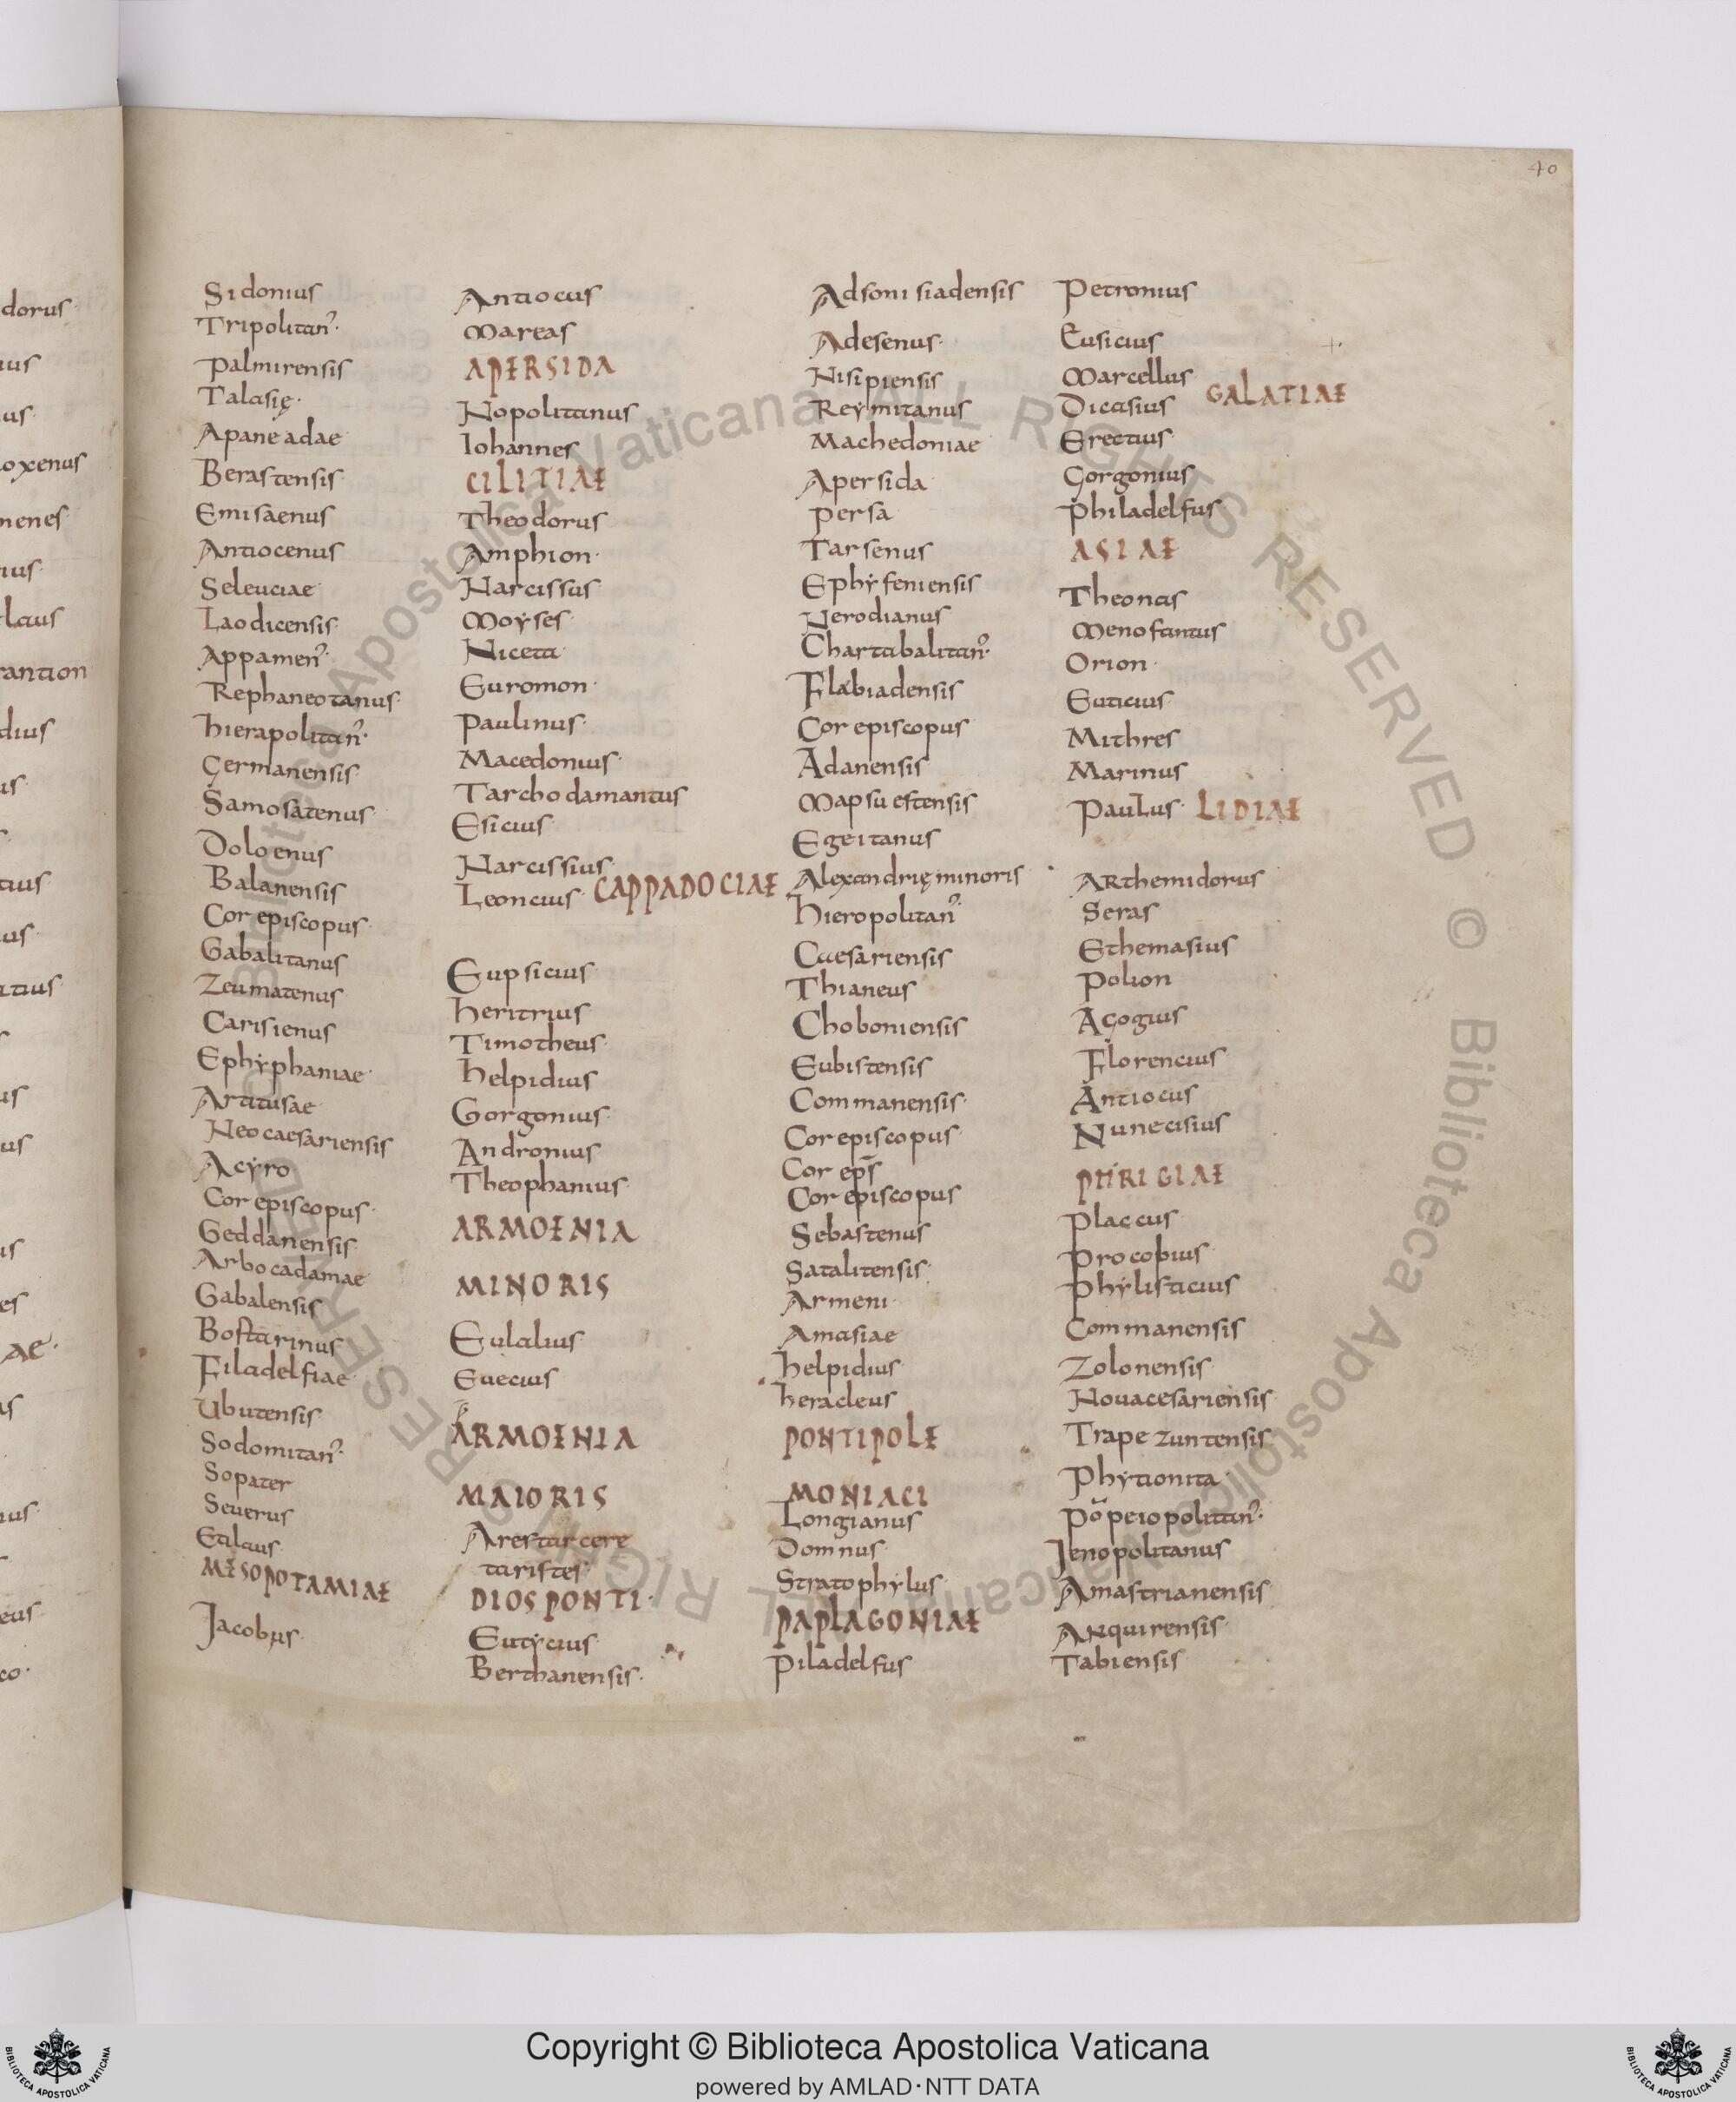 40
Sidonius
Tripolitan᾽·
Palmirensis
Talasię·
Apaneadae
Berastensis
Emisaenus
Antiocenus
Seleuciae
Laodicensis
Appamen᾽·
Rephaneotanus·
hierapolitan᾽·
Germanensis
Samosatenus
Doloenus
Balanensis
Cor episcopus
Gabalitanus
Zeumatenus
Carisienus
Ephyphaniae·
Artitusae
Neocaesariensis
Acyro
Cor episcopus·
Geddanensis
Arbocadamae
Gabalensis
Bostarinus
Filadelfiae
Ubutensis
Sodomitan᾽·
Sopater
Seuerus
Etilaus
MESOPOTAMIAE
Jacobus·
Antiocus
Mareas
APERSIDA
Nopolitanus
Iohannes
CILITIAE
Theodorus
Amphion·
Narcissus
Moyses
Niceta
Euromon·
Paulinus·
Macedonius·
Tarchodamantus
Esicius
Narcissius·
Leoncius· CAPPADOCIAE
Eupsicius
heritrius
Timotheus·
helpidius
Gorgonius·
Andronius
Theophanius·
ARMOENIA
MINORIS
Eulalius
Euecius
ARMOENIA
MAIORIS
Arestarcere
taristes·
DIOSPONTI·
Eutycius
Berthanensis·
Adsonisiadensis
Adesenus·
Nisipiensis
Reymitanus
Machedoniae
Apersida
persa
Tarsenus
Ephyfeniensis
Nerodianus
Chartabalitan᾽·
Flabiadensis
Cor episcopus
Adanensis
Mapsuestensis
Egeitanus
Alexandrię minoris
hieropolitan᾽·
Caesariensis
Thianeus
Choboniensis
Eubistensis
Commanensis·
Cor episcopus
Cor eps̄
Cor episcopus
Sebastenus
Satalitensis
Armeni·
Amasiae
helpidius
heracleus
PONTIPOLE
MONIACI
Longianus
Domnus·
Stratophylus·
PAPLAGONIAE
Piladelfus
Petronius
Eusicius
Marcellus
Dicasius GALATIAE
Erectus·
Gorgonius
Philadelfus·
ASIAE
Theonas
Menofantus
Orion·
Euticius·
Mithres
Marinus
Paulus· LIDIAE
ARthemidorus
Seras
Ethemasius
Polion
Agogius
Florencius
Antiocus
Nunecisius
PHRIGIAE
Placcus
Procobius·
Phylisticius
Commanensis
Zolonensis
Nouacesariensis
Trapezuntensis
Phytionita·
Pōpeiopolitan᾽·
Jenopolitanus
Amastrianensis
Anquirensis·
Tabiensis
Copyright © Biblioteca Apostolica Vaticana
powered by AMLAD·NTT DATA